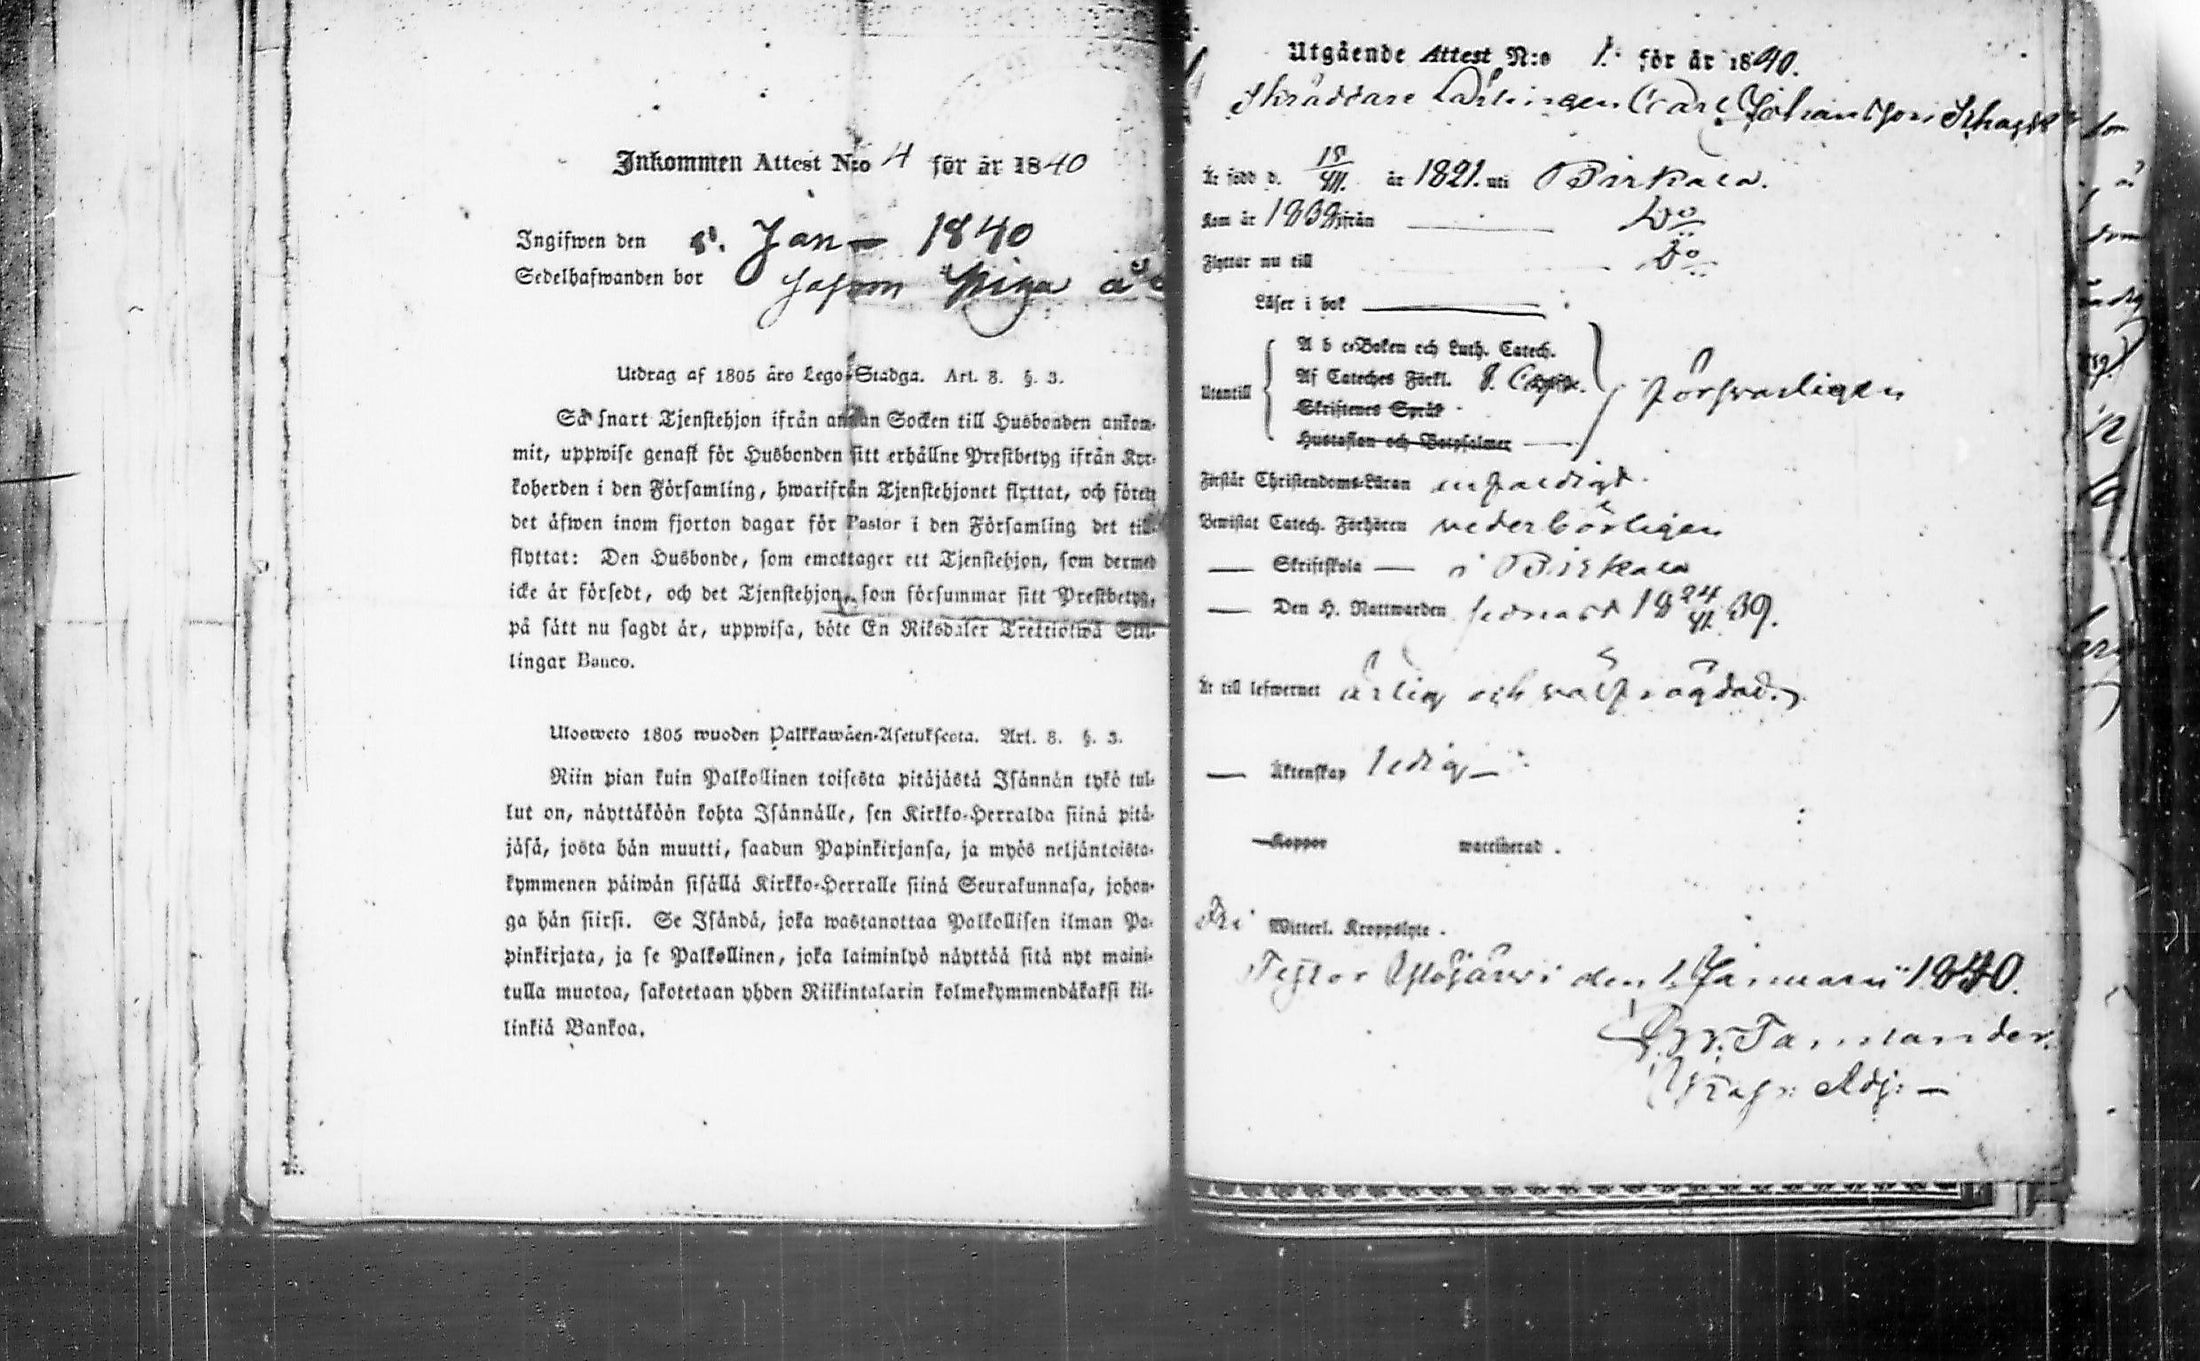 Inkommen Attest N:o 4 för år 1840
Ingifwen den 8. Jan 1840
Sedelhafwanden bor såsom Piga
Utdrag af 1805 års Lego-Stadga. Art. 8. §. 3.
Så snart Tjenstehjon ifrån annan Socken till Husbonden ankom-
mit, uppwise genast för Husbonden sitt erhållne Prestbetyg ifrån Kyr-
koherden i den Församling, hwarifrån Tjenstehjonet flyttat, och förete
det äfwen inom fjorton dagar för Pastor i den Församling det till-
flyttat: Den Husbonde, som emottager ett Tjenstehjon, som dermed
icke är försedt, och det Tjenstehjon, som försummar sitt Prestbetyg,
på sätt nu sagdt är, uppwisa, böte En Riksdaler Trettiotwå Skil-
lingar Banco.
Ulosweto 1805 wuoden Palkkawäen-Asetuksesta. Art. 8. §. 3.
Niin pian kuin Palkollinen toisesta pitäjästä Isännän tykö tul-
lut on, näyttäköön kohta Isännälle, sen Kirkko-Herralda siinä pitä-
jäsä, josta hän muutti, saadun Papinkirjansa, ja myös neljäntoista-
kymmenen päiwän sisällä Kirkko-Herralle siinä Seurakunnasa, johon-
ga hän siirsi. Se Isändä, joka wastanottaa Palkollisen ilman Pa-
pinkirjata, ja se Palkollinen, joka laiminlyö näyttää sitä nyt maini-
tulla muotoa, sakotetaan yhden Riikintalarin kolmekymmendäkaksi kil-
linkiä Bankoa.
Utgående Attest N:o 1. för år 1840.
Skräddare Lärlingen Carl Johansson
Är född d. 15/VII. år 1821. uti Birkala.
Kom år 1839 ifrån Do
Flyttar nu till Do
Läser i bok
Utantill
A b c-Boken och Luth. Catech.
Af Cateches Förkl.
Skriftenes Språk
Hustaflan och Botpsalmer
försvarligen
Förstår Christendoms-Läran enfaldigt.
Bewistat Catech. Förhören vederbörligen
— Skriftskola — i Birkala
— Den H. Nattwarden senast 18 24/XI 39.
Är till lefwernet ärlig och välfrägdad.
— Äktenskap ledig
Koppor waccinerad.
Fri Witterl. Kroppslyte.
Testor Ylöjärvi den 1. Januarii 1840.
Tamlander.
Adj: